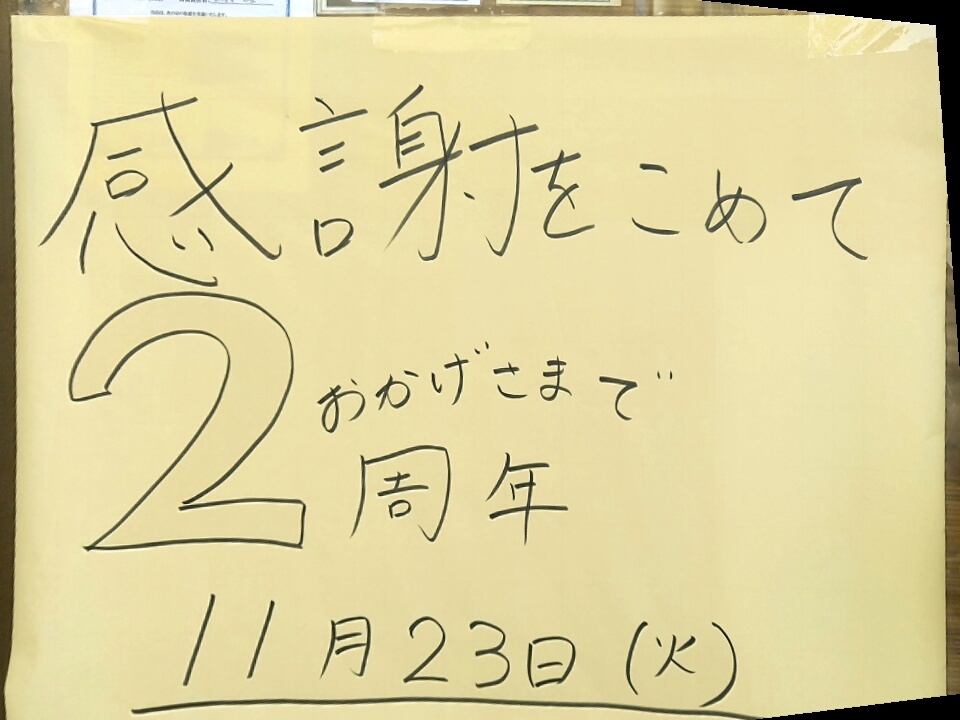 感謝をこめて
おかげさまで
2周年
11月23日(火)